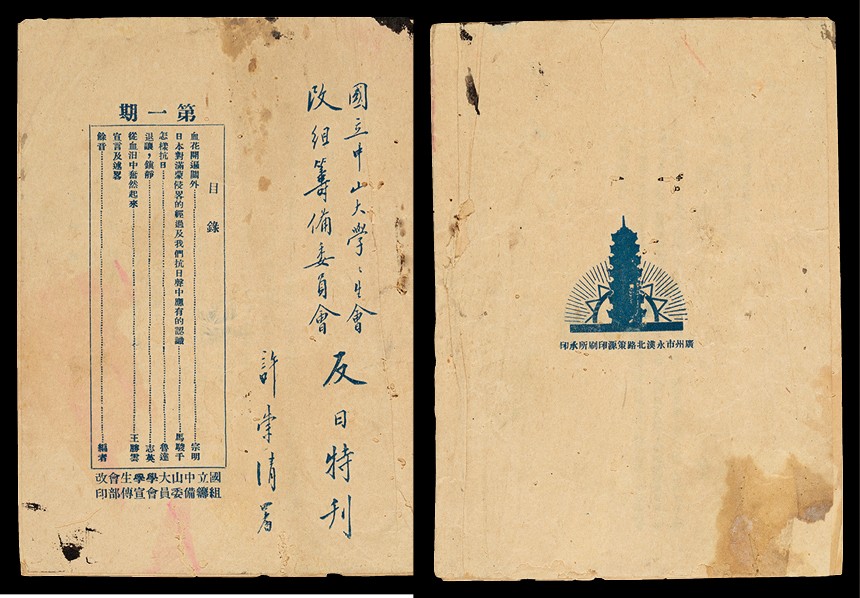 國立中山大學〻生會
改組籌備委員會
反日特刊
許崇清署
第一期
目錄
血花開遍關外 宗明
日本對滿蒙侵畧的經過及我們抗日聲中應有的認識 馬駿千
怎樣抗日 魯達
退讓，鎮靜 志英
從血泪中奮然起來 王勝雲
宣言及
餘音 編者
國立中山大學學生會改
組籌備委員會宣傳部印
廣州市永漢北路策源印刷所承印